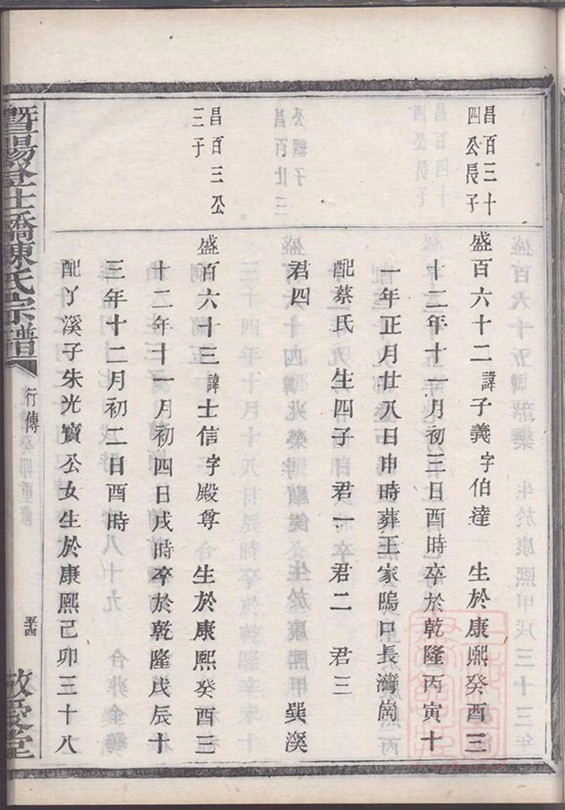 昌百三十
四公長子
盛百六十二諱子義字伯達 生於康熙癸酉三
十二年十一月初三日酉時卒於乾隆丙寅十
一年正月廿八日申時葬王家塢口長灣崗
配蔡氏 生四子 君一 君二 君三
君四
昌百六公
三子
盛百六十三諱士信字殿尊 生於康熙癸酉三
十二年十一月初四日戌時卒於乾隆戊辰十
三年十二月初二日酉時
配丫溪子朱光寶公女生於康熙己卯三十八
陳氏宗譜
行傳
敬愛堂